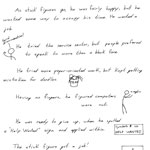 As stick figures go he was fairly happy, but he
wanted some way to occupy his time. He wanted a
job.
He tried the service center, but people preferred
to speak to more than a black line.
He tried more paper-oriented work, but kept getting
mistaken for
Having no fingers he figured computers
were out.
He was ready to give up, when he spotted
a "Help Wanted" sign and applied within.
HELP WANTED
The stick figure got a job!